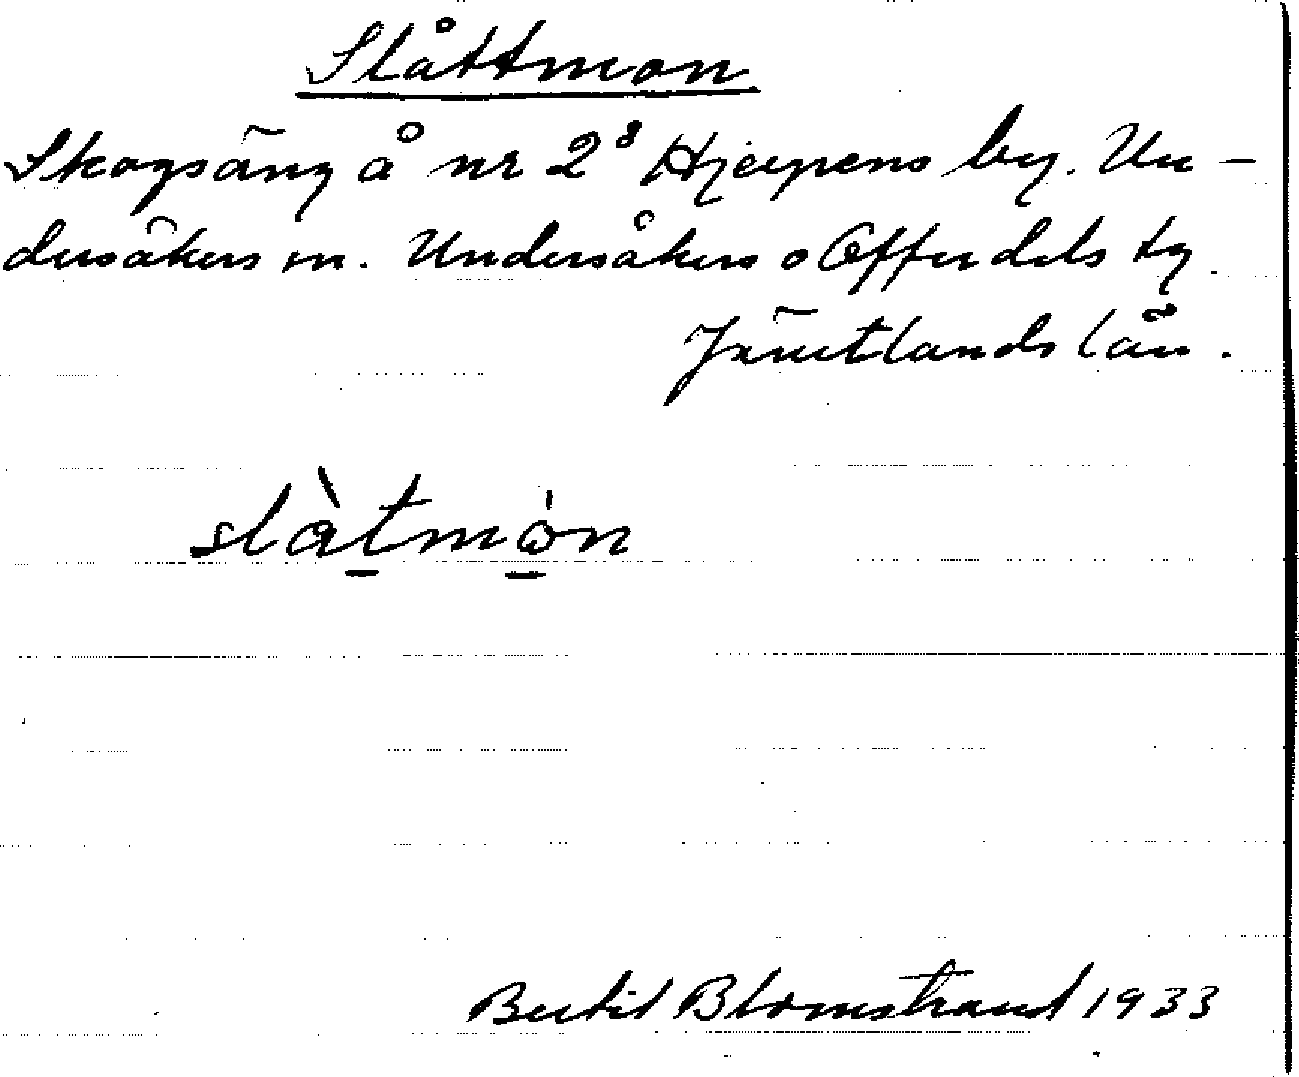 Slåttmon
Skogsäng å nr 2⁸ Hjerpens by. Un-
dersåkers sn. Undersåkers o Offerdals tg
Jämtlands län.
slàtmòn
Bertil Blomstrand 1933